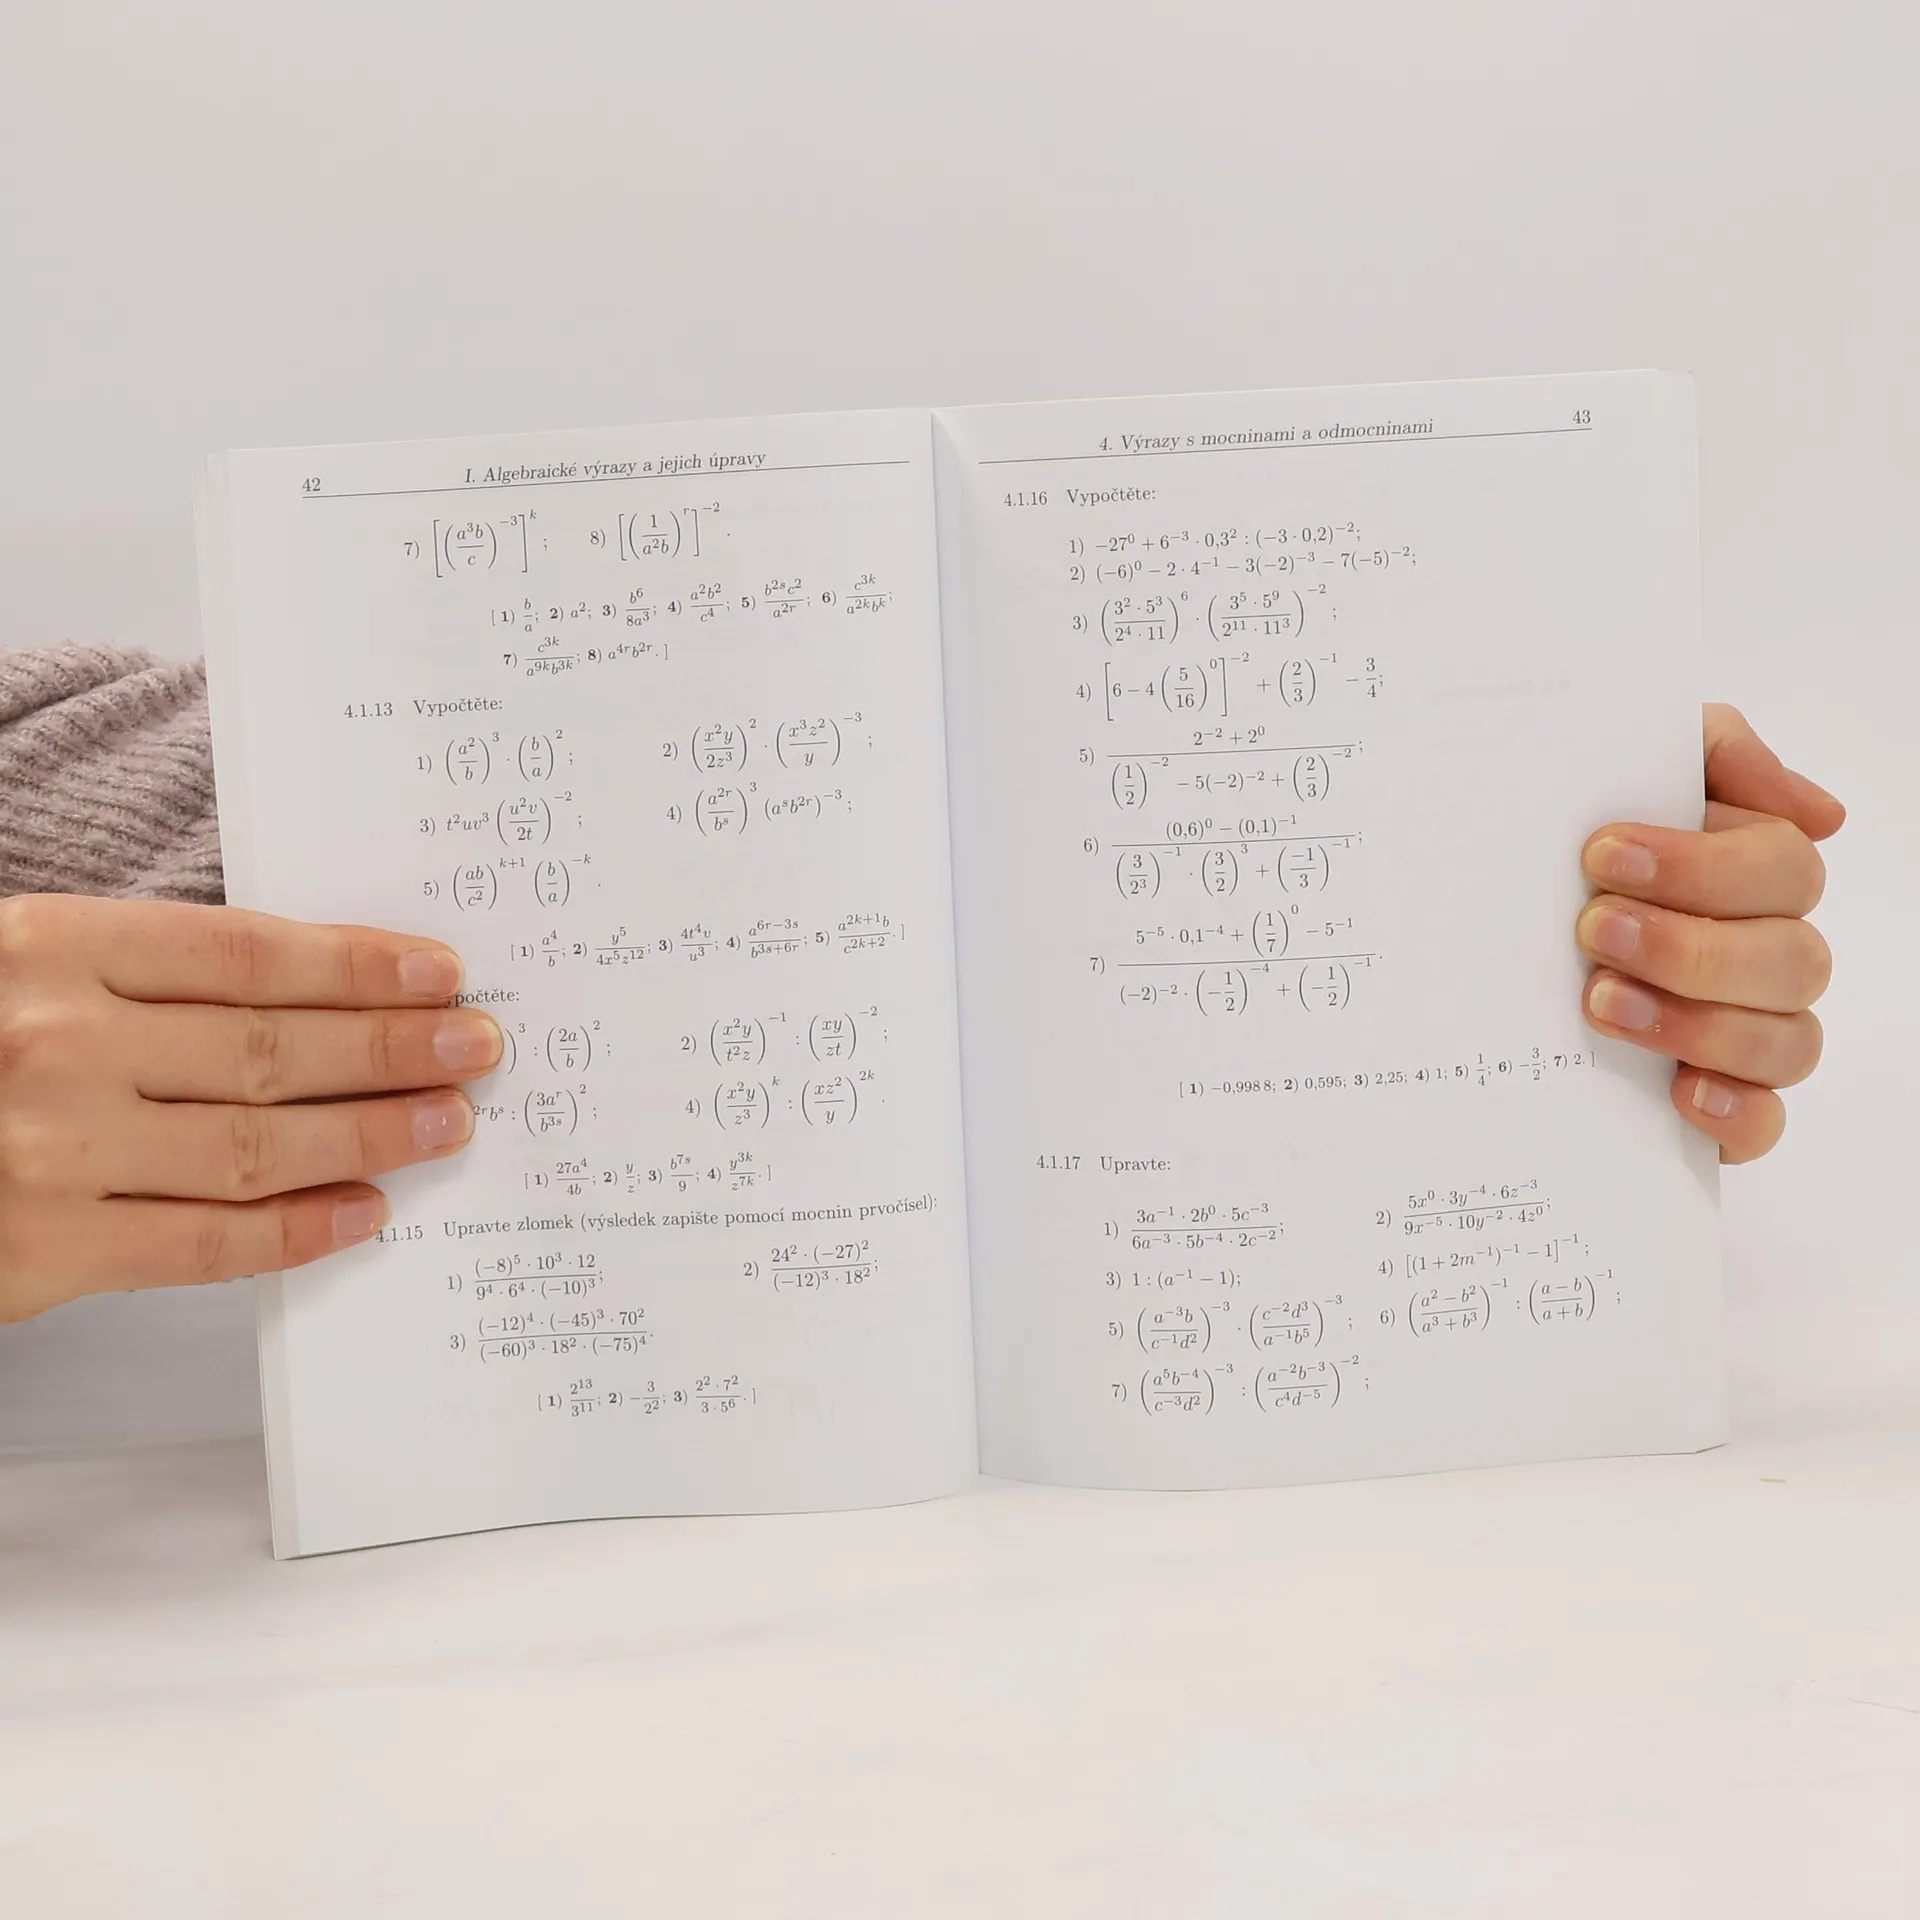 42 I. Algebraické výrazy a jejich úpravy
7) [((a³b)/c)⁻³]ᵏ ; 8) [(1/(a²b))ʳ]⁻² .
[ 1) b/a; 2) a²; 3) b⁶/(8a³); 4) (a²b²)/c⁴; 5) (b²ˢc²)/a²ʳ; 6) c³ᵏ/(a²ᵏbᵏ);
7) c³ᵏ/(a⁹ᵏb³ᵏ); 8) a⁴ʳb²ʳ. ]
4.1.13 Vypočtěte:
1) (a²/b)³ · (b/a)² ; 2) ((x²y)/(2z³))² · ((x³z²)/y)⁻³ ;
3) t²uv³ ((u²v)/(2t))⁻² ; 4) (a²ʳ/bˢ)³ (aˢb²ʳ)⁻³ ;
5) ((ab)/c²)ᵏ⁺¹ (b/a)⁻ᵏ .
[ 1) a⁴/b; 2) y⁵/(4x⁵z¹²); 3) (4t⁴v)/u³; 4) a⁶ʳ⁻³ˢ/b³ˢ⁺⁶ʳ; 5) (a²ᵏ⁺¹b)/c²ᵏ⁺². ]
počtěte:
)³ : ((2a)/b)² ; 2) ((x²y)/(t²z))⁻¹ : ((xy)/(zt))⁻² ;
²ʳbˢ : ((3aʳ)/b³ˢ)² ; 4) ((x²y)/z³)ᵏ : ((xz²)/y)²ᵏ .
[ 1) (27a⁴)/(4b); 2) y/z; 3) b⁷ˢ/9; 4) y³ᵏ/z⁷ᵏ. ]
4.1.15 Upravte zlomek (výsledek zapište pomocí mocnin prvočísel):
1) ((−8)⁵ · 10³ · 12)/(9⁴ · 6⁴ · (−10)³); 2) (24² · (−27)²)/((−12)³ · 18²);
3) ((−12)⁴ · (−45)³ · 70²)/((−60)³ · 18² · (−75)⁴).
[ 1) 2¹³/3¹¹; 2) −3/2²; 3) (2² · 7²)/(3 · 5⁶). ]
4. Výrazy s mocninami a odmocninami 43
4.1.16 Vypočtěte:
1) −27⁰ + 6⁻³ · 0,3² : (−3 · 0,2)⁻²;
2) (−6)⁰ − 2 · 4⁻¹ − 3(−2)⁻³ − 7(−5)⁻²;
3) ((3² · 5³)/(2⁴ · 11))⁶ · ((3⁵ · 5⁹)/(2¹¹ · 11³))⁻² ;
4) [6 − 4 (5/16)⁰]⁻² + (2/3)⁻¹ − 3/4;
5) (2⁻² + 2⁰)/((1/2)⁻² − 5(−2)⁻² + (2/3)⁻²);
6) ((0,6)⁰ − (0,1)⁻¹)/((3/2³)⁻¹ · (3/2)³ + (−1/3)⁻¹);
7) (5⁻⁵ · 0,1⁻⁴ + (1/7)⁰ − 5⁻¹)/((−2)⁻² · (−1/2)⁻⁴ + (−1/2)⁻¹).
[ 1) −0,998 8; 2) 0,595; 3) 2,25; 4) 1; 5) 1/4; 6) −3/2; 7) 2. ]
4.1.17 Upravte:
1) (3a⁻¹ · 2b⁰ · 5c⁻³)/(6a⁻³ · 5b⁻⁴ · 2c⁻²); 2) (5x⁰ · 3y⁻⁴ · 6z⁻³)/(9x⁻⁵ · 10y⁻² · 4z⁰);
3) 1 : (a⁻¹ − 1); 4) [(1 + 2m⁻¹)⁻¹ − 1]⁻¹ ;
5) ((a⁻³b)/(c⁻¹d²))⁻³ · ((c⁻²d³)/(a⁻¹b⁵))⁻³ ; 6) ((a² − b²)/(a³ + b³))⁻¹ : ((a − b)/(a + b))⁻¹ ;
7) ((a⁵b⁻⁴)/(c⁻³d²))⁻³ : ((a⁻²b⁻³)/(c⁴d⁻⁵))⁻² ;